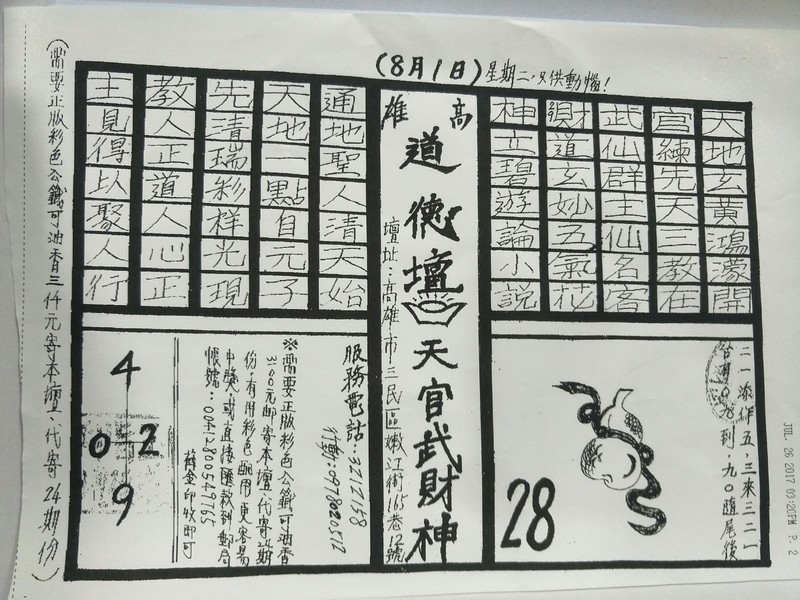 (8月1日)星期二,只供動腦!
天地玄黃鴻濛開
官練先天三教在
武仙群主仙名客
財道玄妙五氣花
神立碧遊論小說
高雄
道德壇
天官武財神
壇址:高雄市三民區嫩江街165巷12號
通地聖人清天始
天地一點自元子
先清瑞彩祥光現
教人正道人心正
主見得以聚人行
二一添作五,三來三二一
台灣0九到.九0隨尾後
28
服務電話:3212158
※需要正版彩色公籤可油香
3100元郵寄本壇.代寄24期
份.有用彩色
中獎.或直接匯款到郵局
4
0 2
9
(需要正版彩色公籤可油香三仟元寄本壇.代寄24期份)
JUL. 26 2017 03:20PM P. 2